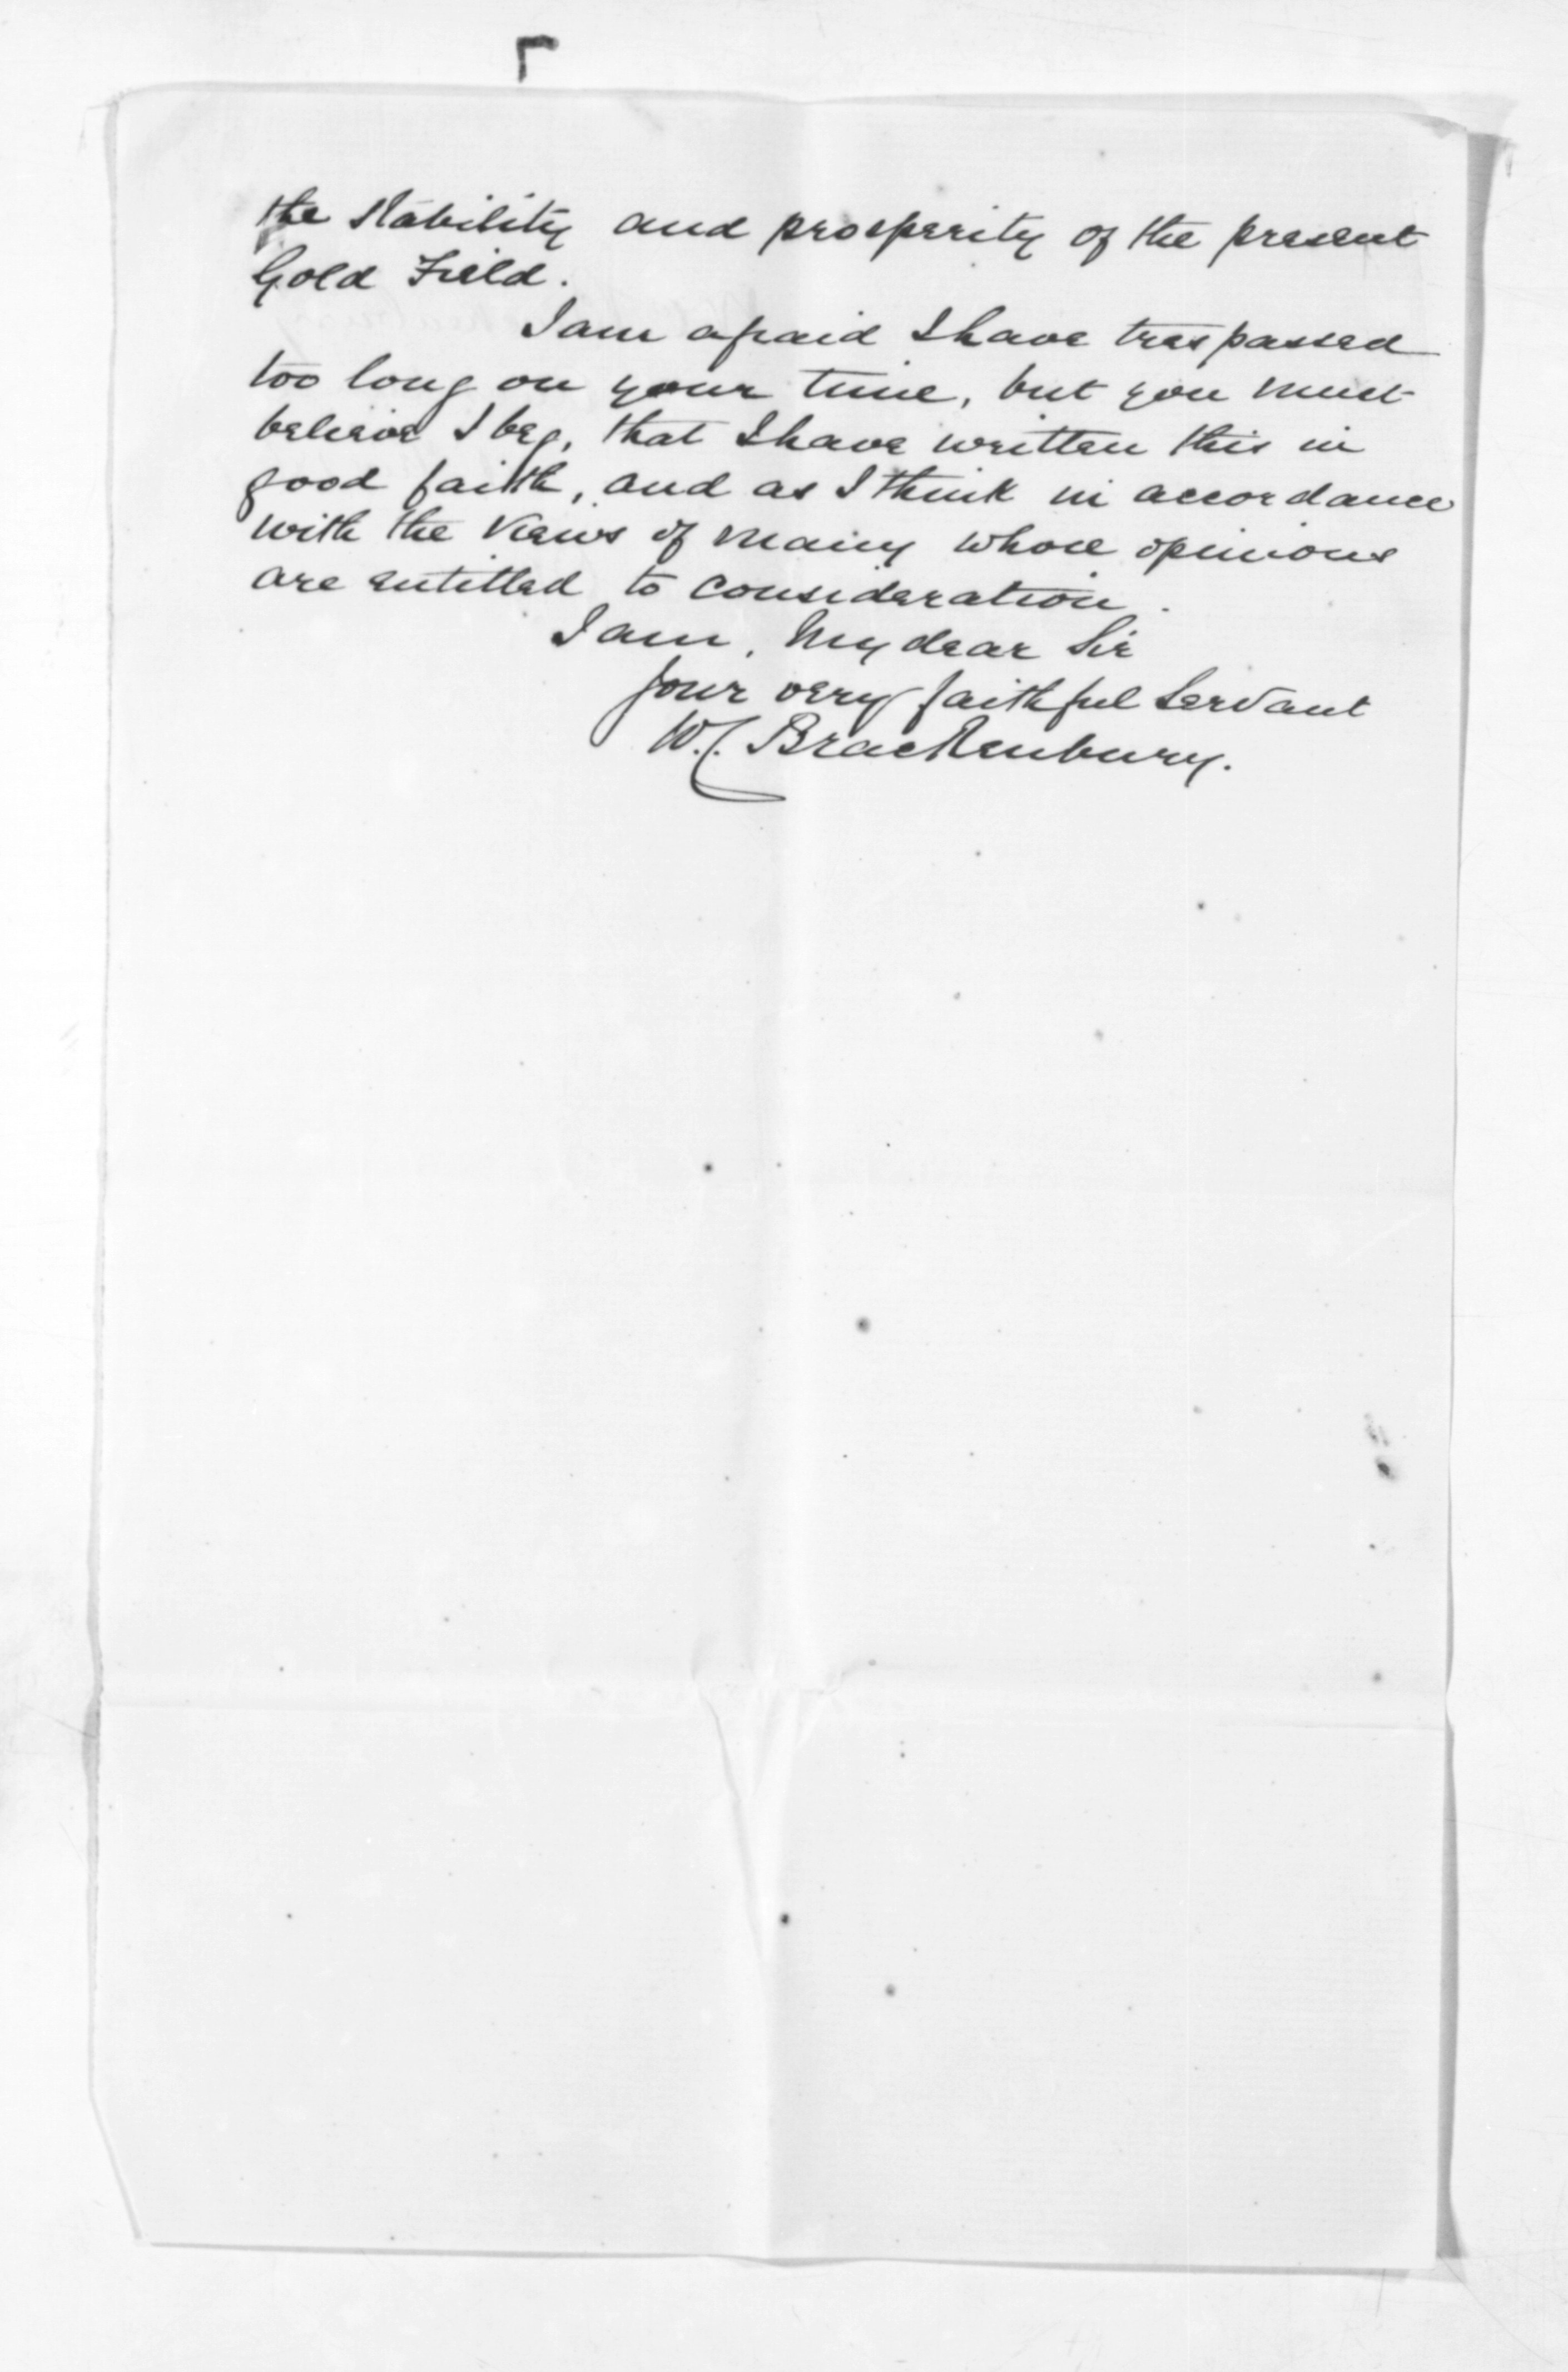 the stability and prosperity of the present
Gold Field.
I am afraid I have trespassed
too long on your time, but you must
believe I beg, that I have written this in
good faith, and as I think in accordance
with the views of many whose opinions
are entitled to consideration.
I am, My dear Sir
Your very faithful Servant
W. Brackenbury.